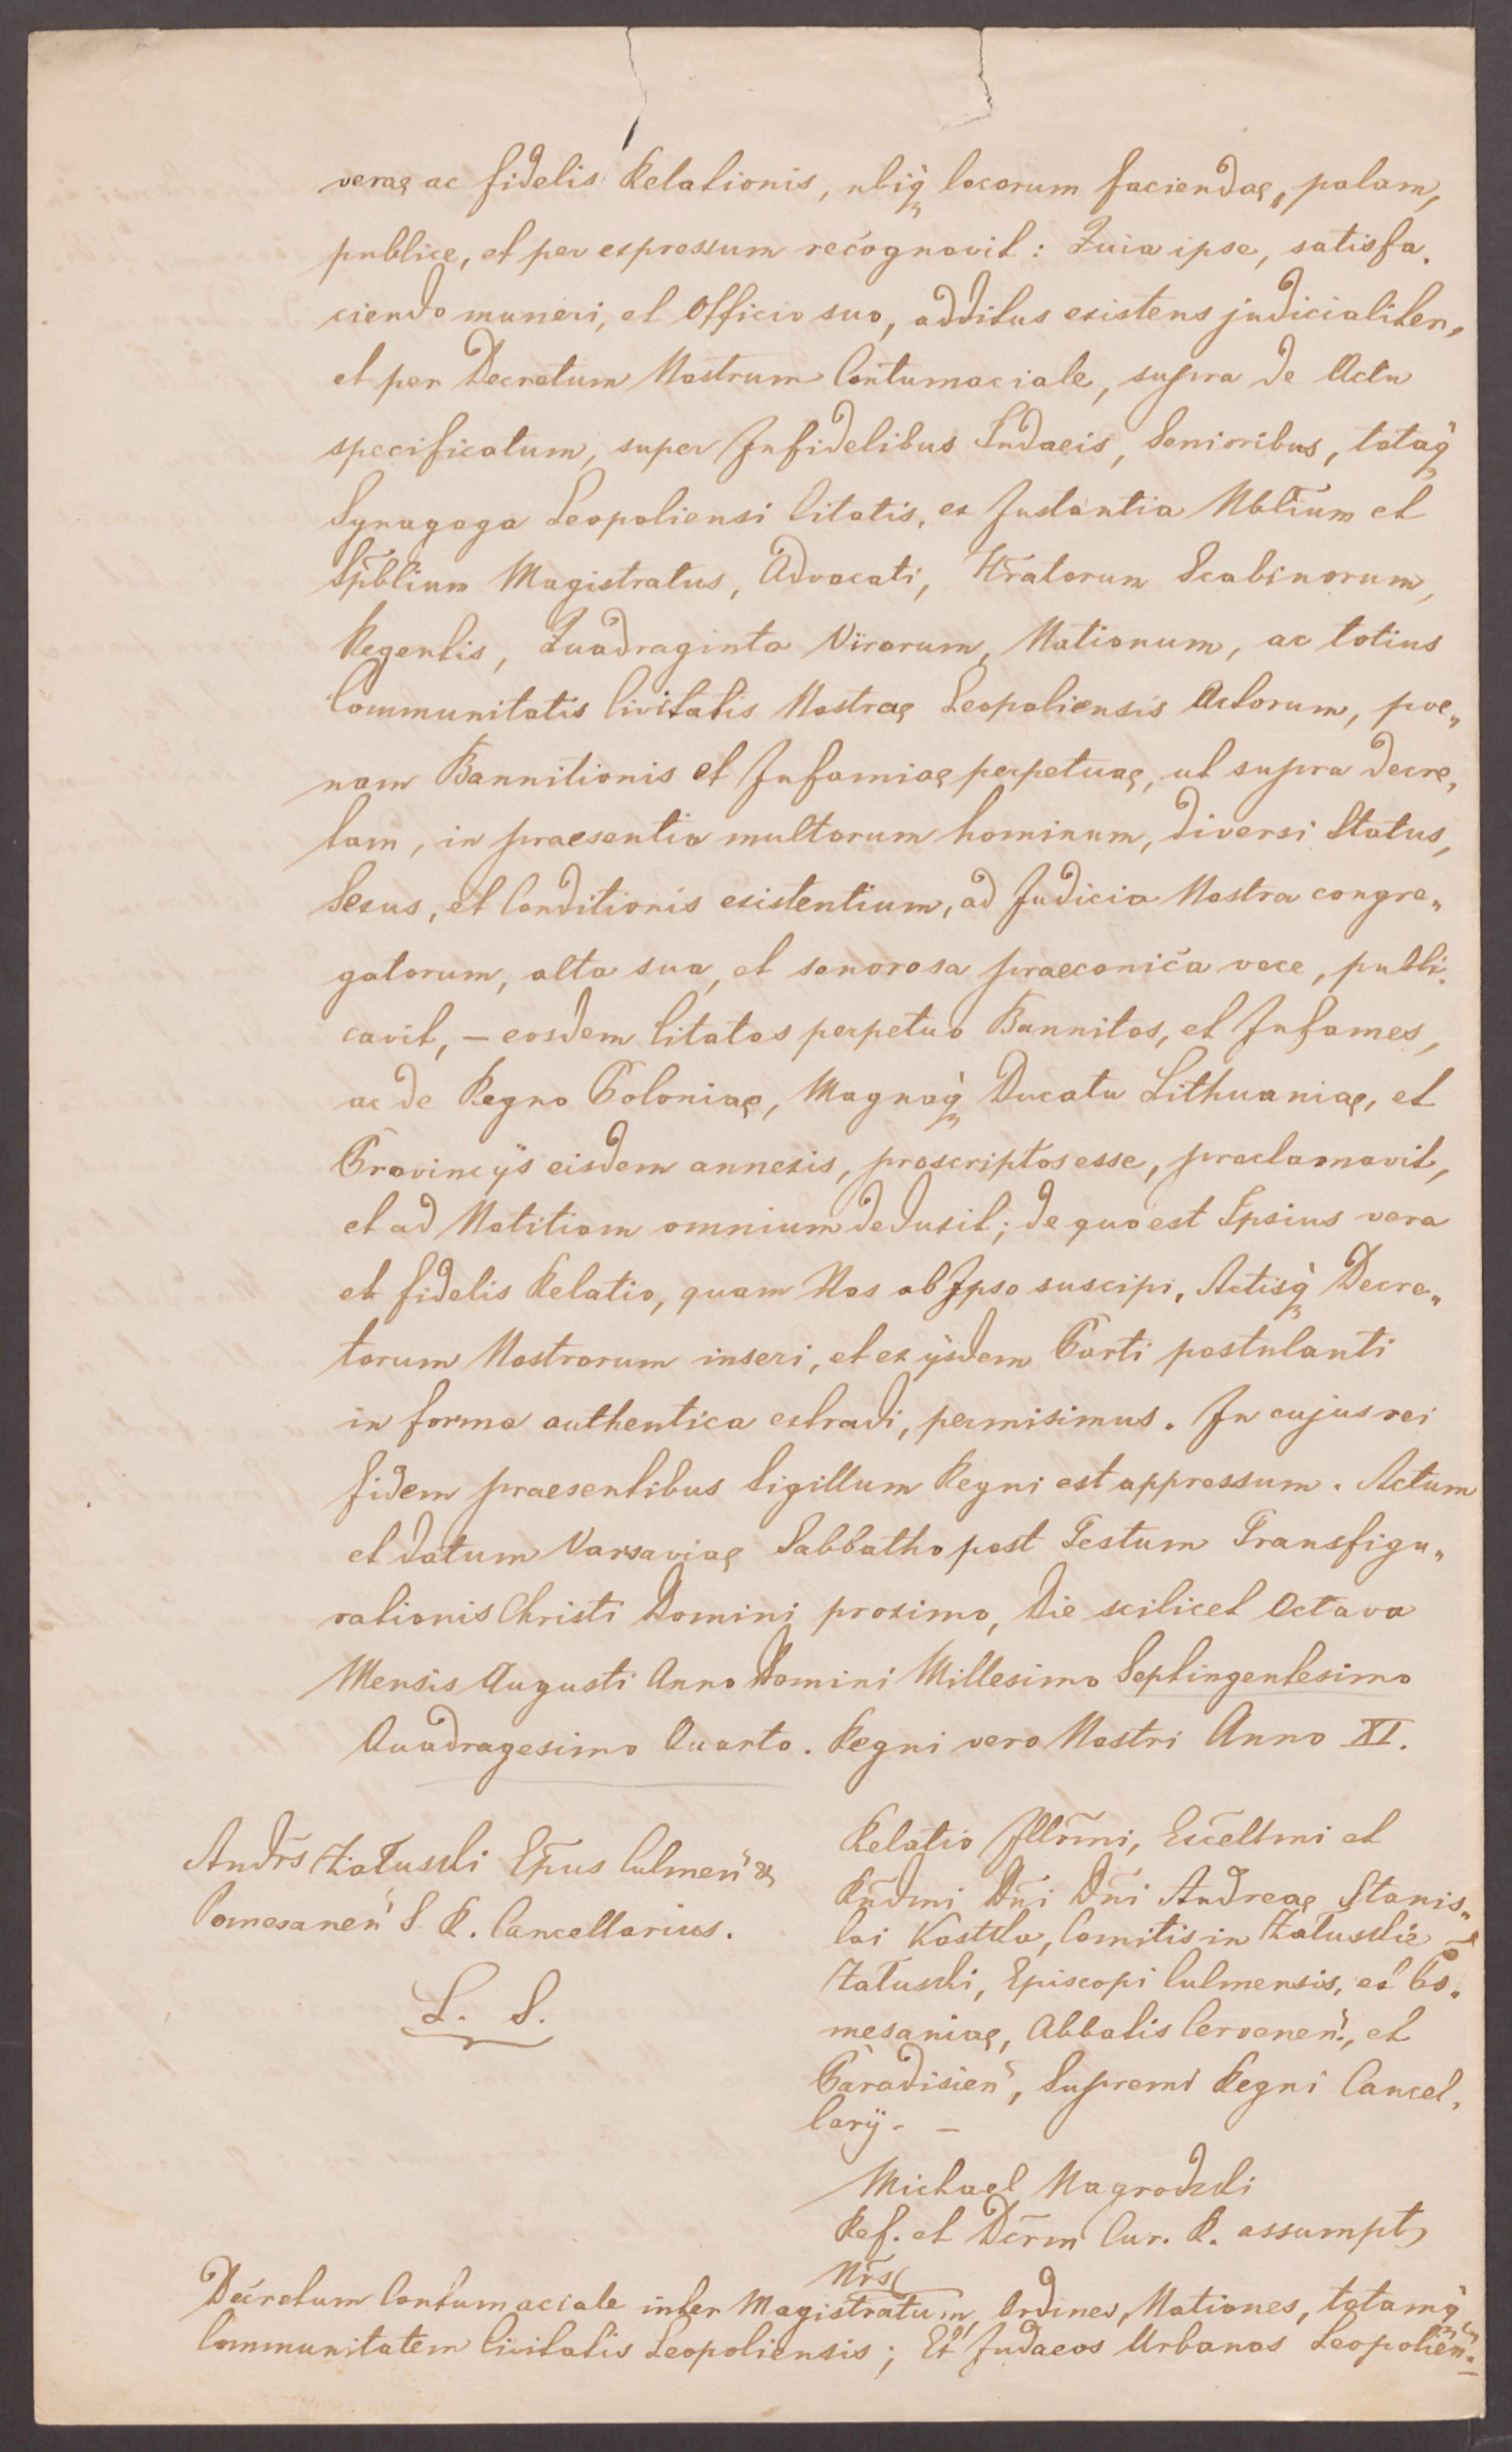 verae ac fidelis Relationis, ubiq̀ locorum faciendae, palam,
publice, et per expressum recognovit: Quia ipse, satisfa„
ciendo muneri, et Officio suo, additus existens judicialiter,
et per Decretum Nostrum Contumaciale, supra de Actu
specificatum, super Infidelibus Judaeis, Senioribus, totaq̀
Synagoga Leopoliensi Citatis, ex Instantia Nblium et
Spblium Magistratus, Advocati, Jũratorum Scabinorum,
Regentis, Quadraginta Virorum, Nationum, ac totius
Communitatis Civitatis Nostrae Leopoliensis Actorum, poe„
nam Bannitionis et Infamiae perpetuae, ut supra decre„
tam, in praesentia multorum hominum, diversi Status,
Sexus, et Conditionis existentium, ad Judicia Nostra congre„
gatorum, alta sua, et sonorosa praeconica voce, publi„
cavit, – eosdem Citatos perpetuo Bannitos, et Infames,
ac de Regno Poloniae, Magnoq̀ Ducatu Lithuaniae, et
Provincÿs eisdem annexis, proscriptos esse, proclamavit,
et ad Notitiam omnium deduxit; de quo est Ipsius vera
et fidelis Relatio, quam Nos ab Ipso suscipi, Actisq̀ Decre„
torum Nostrorum inseri, et ex ÿsdem Parti postulanti
in forma authentica extradi, permisimus. In cujus rei
fidem praesentibus Sigillum Regni est appressum. Actum
et datum Varsaviae Sabbatho post Festum Transfigu„
rationis Christi Domini proximo, Die scilicet Octava
Mensis Augusti Anno Domini Millesimo Septingentesimo
Quadragesimo Quarto. Regni vero Nostri Anno XI.
Andr̃s Załuski Ep̃us Culmeñ &
Pomesaneñ S. R. Cancellarius.
L. S.
Relatio Illr̃mi, Excellmi et
Rñdmi Dñi Dñi Andreae Stanis„
lai Kostka, Comitis in Załuskie
Załuski, Episcopi Culmensis, et Po„
mesaniae, Abbatis Cerveneñ., et
Paradisieñ, Supremi Regni Cancel„
larÿ. –
Michael Nagrodzki
Ref. et Dcrm Cur. R. assumpt
Nrs
Decretum Contumaciale inter Magistratum, Ordines, Nationes, totamq̀
Communitatem Civitatis Leopoliensis; Et Judaeos Urbanos Leopolieñ.